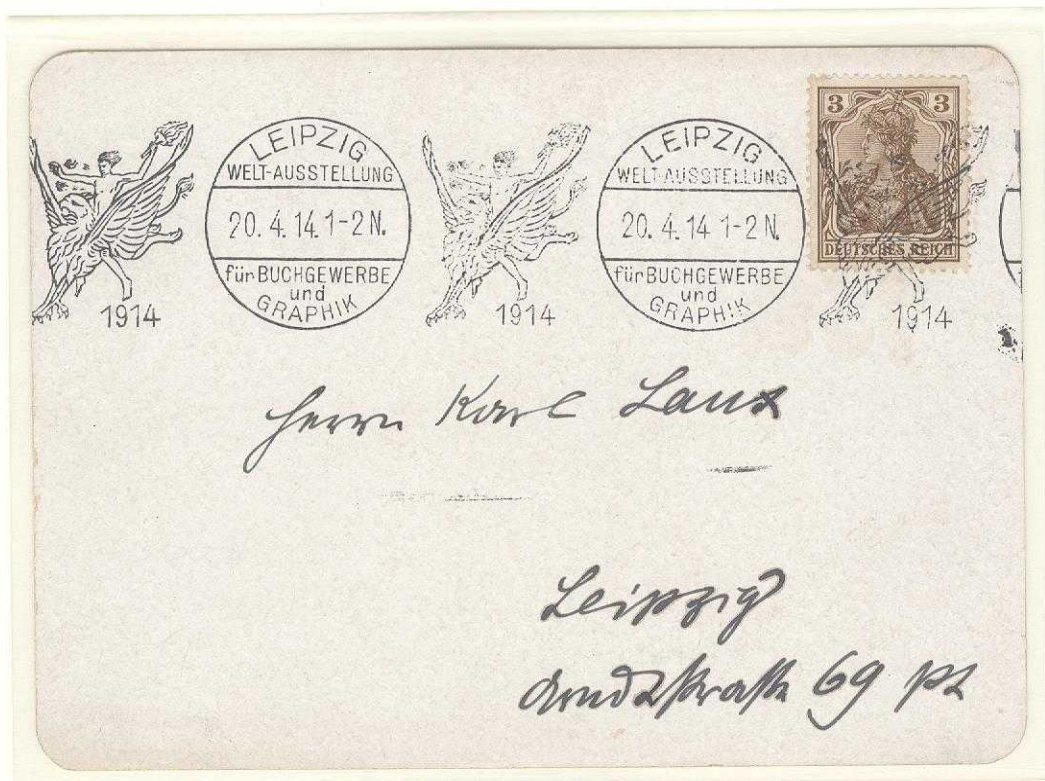 LEIPZIG
WELT-AUSSTELLUNG
20. 4. 14. 1-2 N.
für BUCHGEWERBE
und
GRAPHIK
1914
LEIPZIG
WELT-AUSSTELLUNG
20. 4. 14 1-2 N.
für BUCHGEWERBE
und
GRAPHIK
1914
3 3
DEUTSCHES REICH
1914
Herrn Karl Lanz
Leipzig
Arndtstraße 69 pt